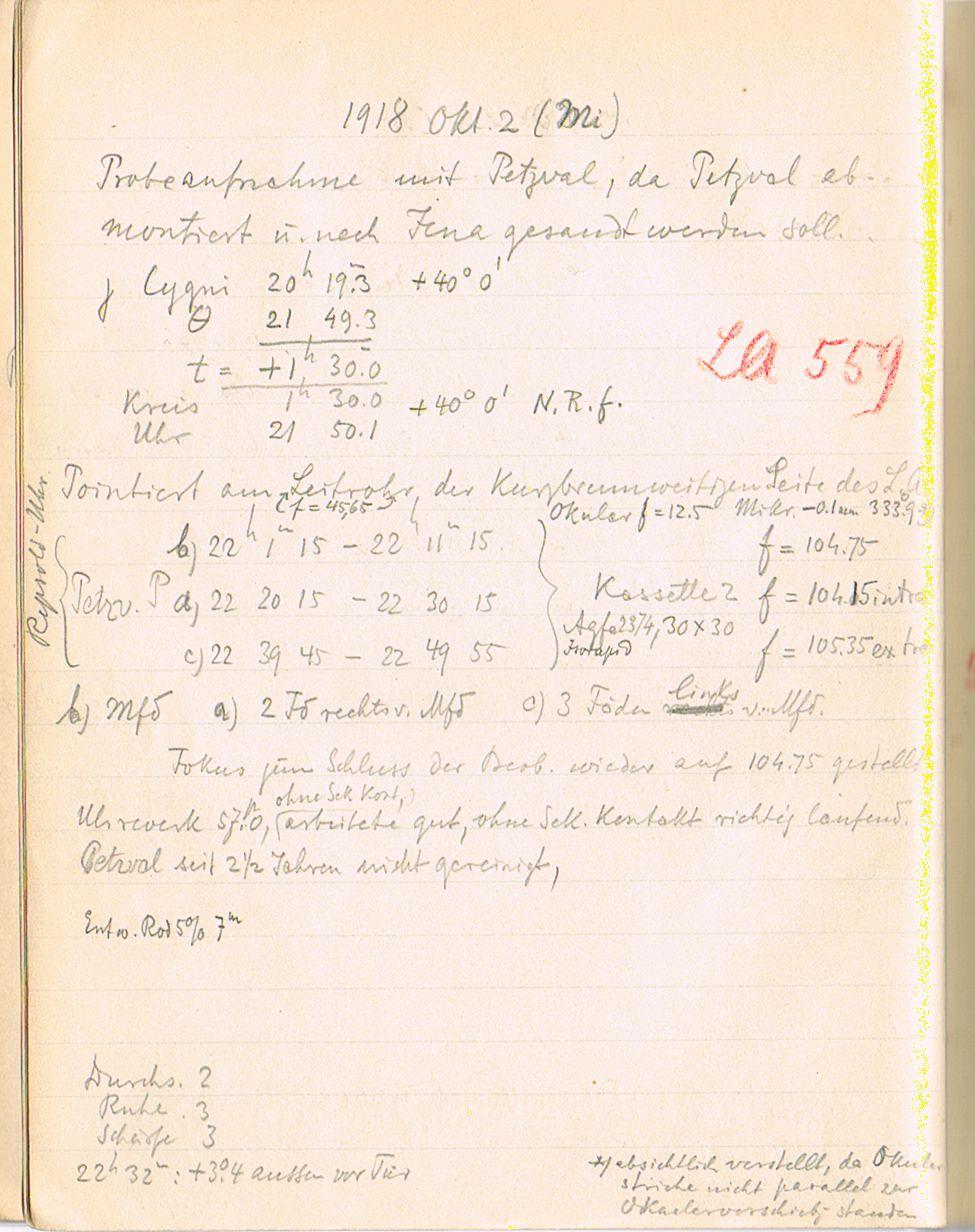 1918 Okt. 2 (Mi)
Probeaufnahme mit Petzval, da Petzval ab-
montiert u. nach Jena gesandt werden soll.
γ Cygni 20h 19m.3 +40° 0'
θ 21 49.3
t = +1h 30.0
LA 559
Kreis 1h 30.0 +40° 0' N.R.f.
Uhr 21 50.1
Pointiert am Leitrohr, der Kurzbrennweitigen Seite des L.A
(f = 45,65) Okular f = 12.5 Mikr. -0.1mm 333.9
Repsold-Uhr
b) 22h 1m 15 - 22h 11m 15. f = 104.75
Petzv. P a) 22 20 15 - 22 30 15 Kassette 2 f = 104.15 intra
Agfa 2374, 30x30
c) 22 39 45 - 22 49 55 f = 105.35 extra
b) Mfd a) 2 Fd rechts v. Mfd c) 3 Fäden links v. Mfd.
Fokus zum Schluss der Beob. wieder auf 104.75 gestellt
ohne Sek Kont,
Uhrwerk 57.0, arbeitete gut, ohne Sek. Kontakt richtig laufend.
Petzval seit 2 1/2 Jahren nicht gereinigt,
Entw. Rod 5% 7m
Durchs. 2
Ruhe . 3
Schärfe 3
22h 32m : +3°.4 aussen vor Tür
*) absichtlich verstellt, da Okular
striche nicht parallel zur
Okularverschieb. standen